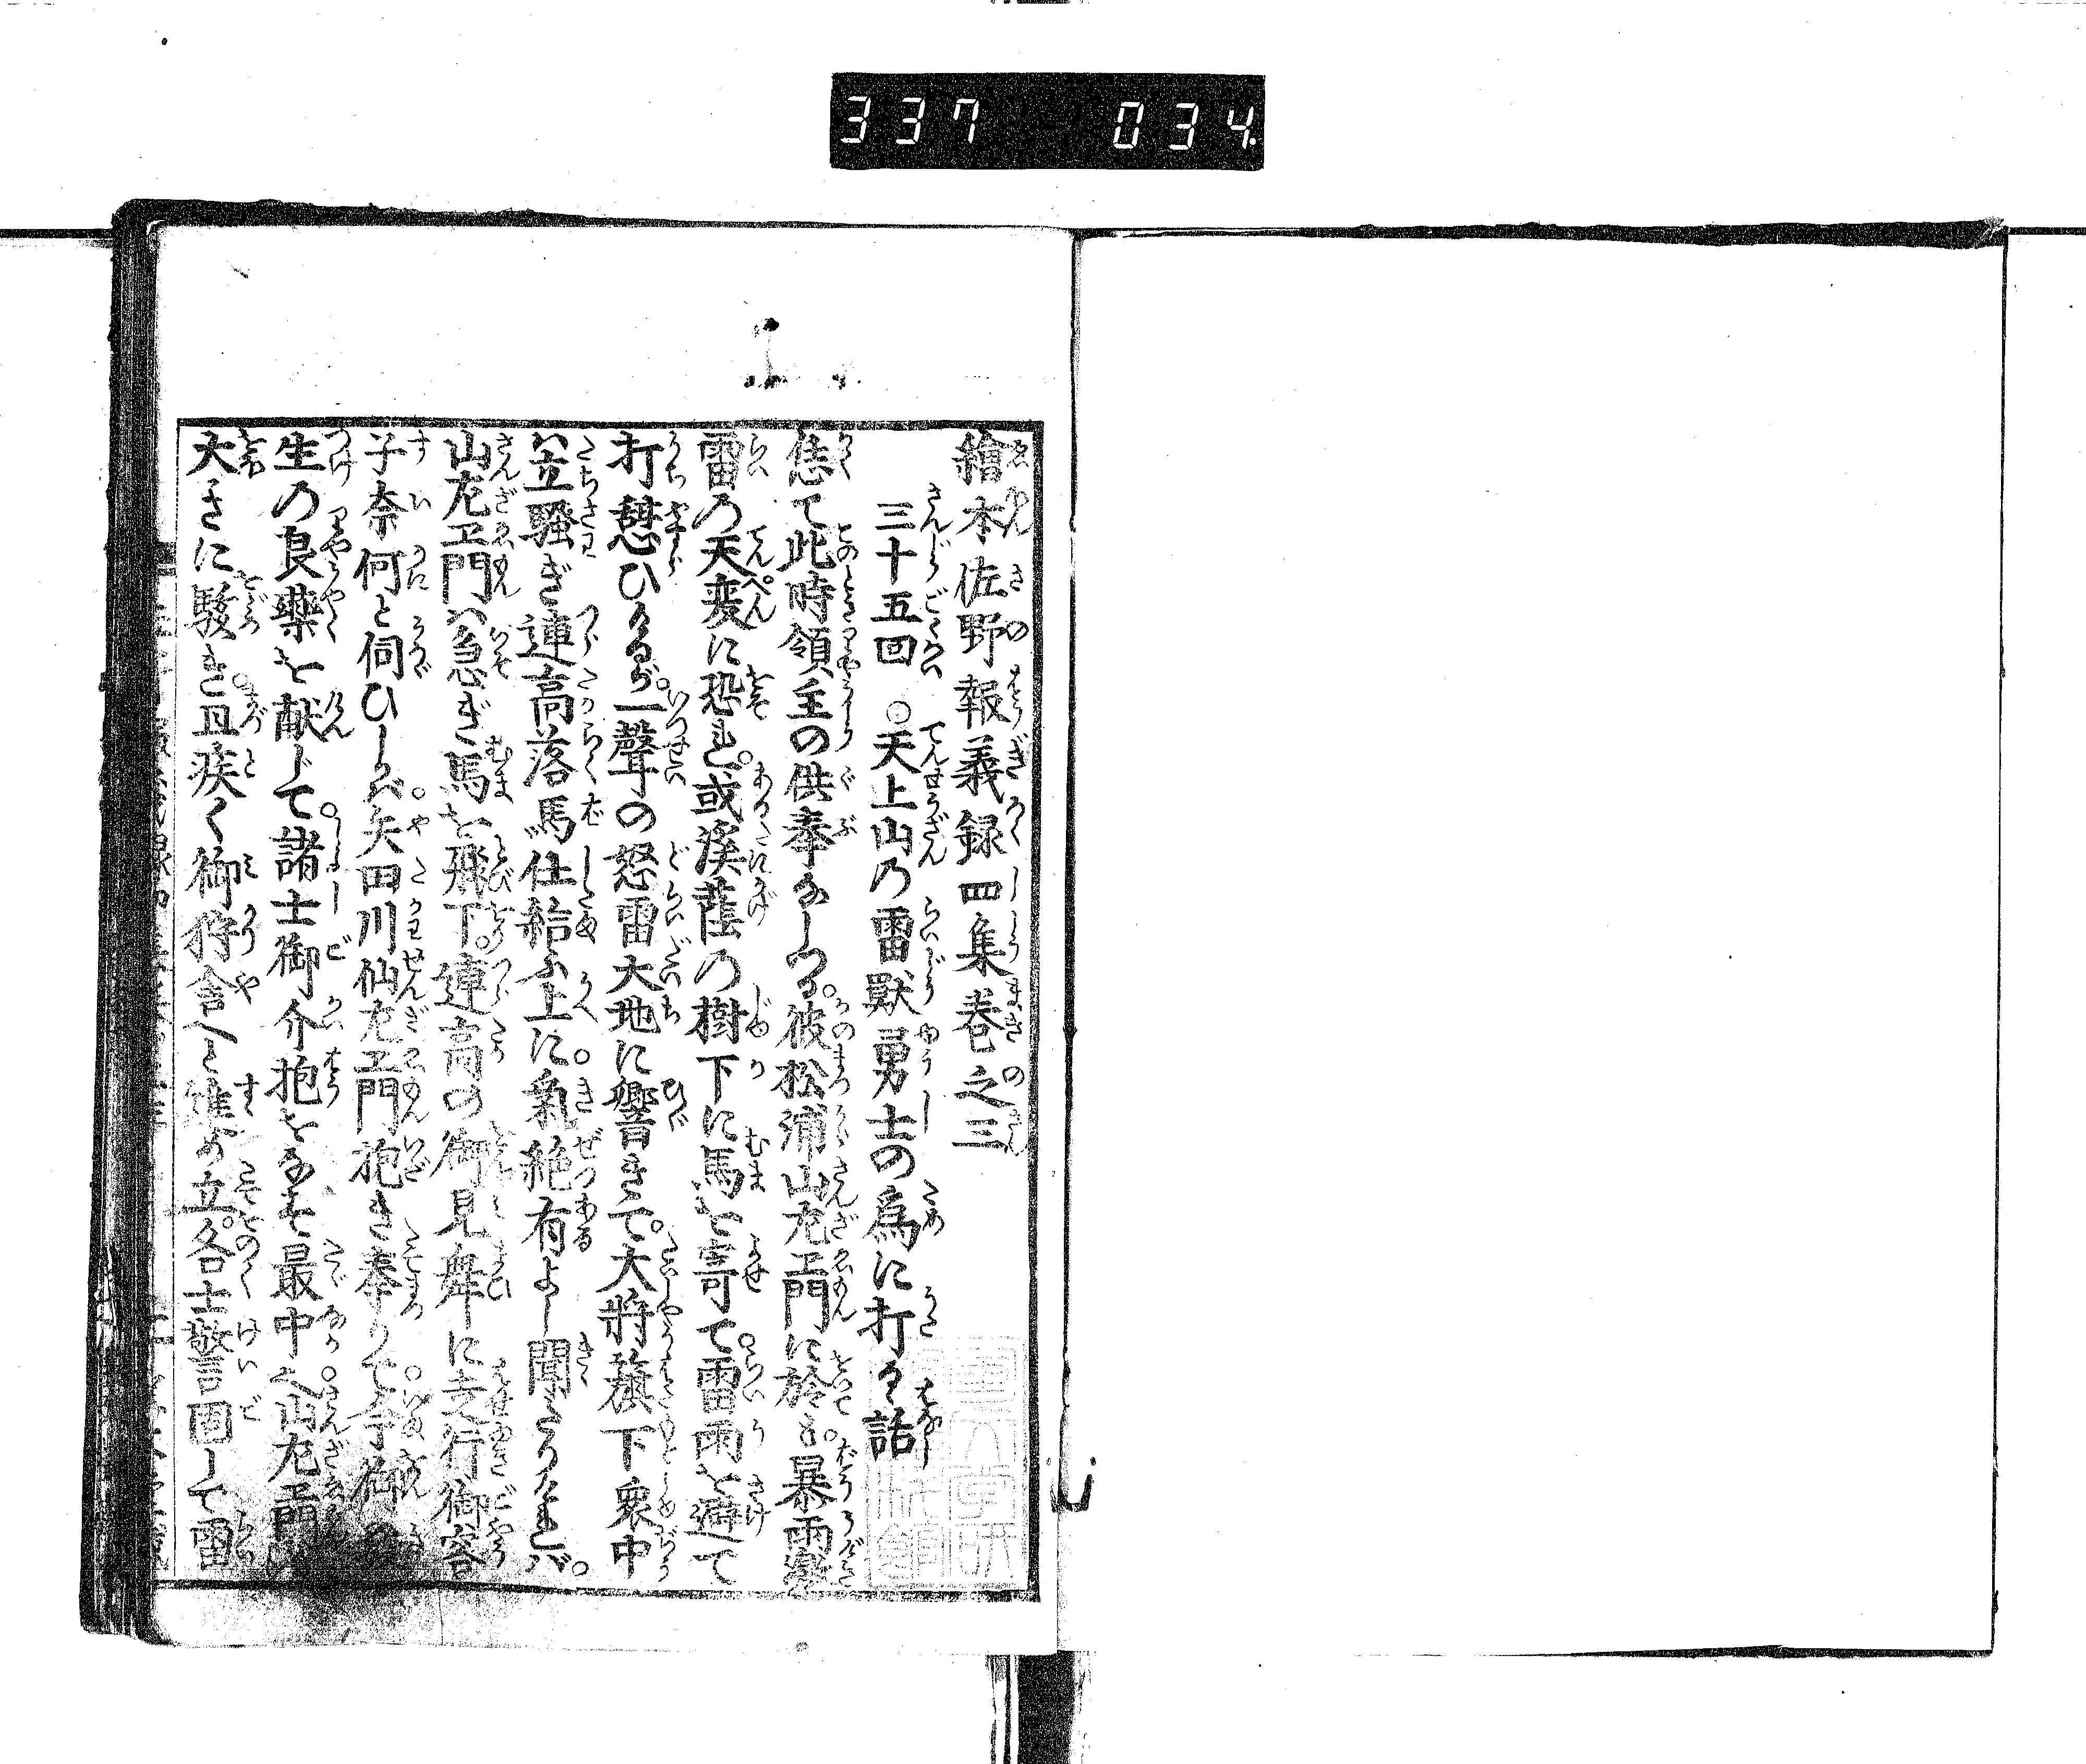 337 034
繪本佐野報義録四集巻之三
三十五回 ○天上山乃雷獣勇士の為に打るゝ話
恁て此時領主の供奉なしつる。彼松浦山左エ門に於も。暴雨激
雷乃天変に恐れ。或溪蔭乃樹下に馬を寄て。雷雨を避て
打憩ひけるが。一聲の怒雷大地に響きて。大将籏下衆中
ハ立騒ぎ連高落馬仕給ふ上に氣絶有よし聞えけれバ。
山左エ門ハ急ぎ馬を飛下。連高の御見舞に走行御容
子奈何と伺ひしが。矢田川仙左エ門抱き奉りて。今御
生の良藥を献じて。諸士御介抱をなす最中へ。山左エ門
大きに駭き。且疾く御狩舎へと進め立。各士警固して雷